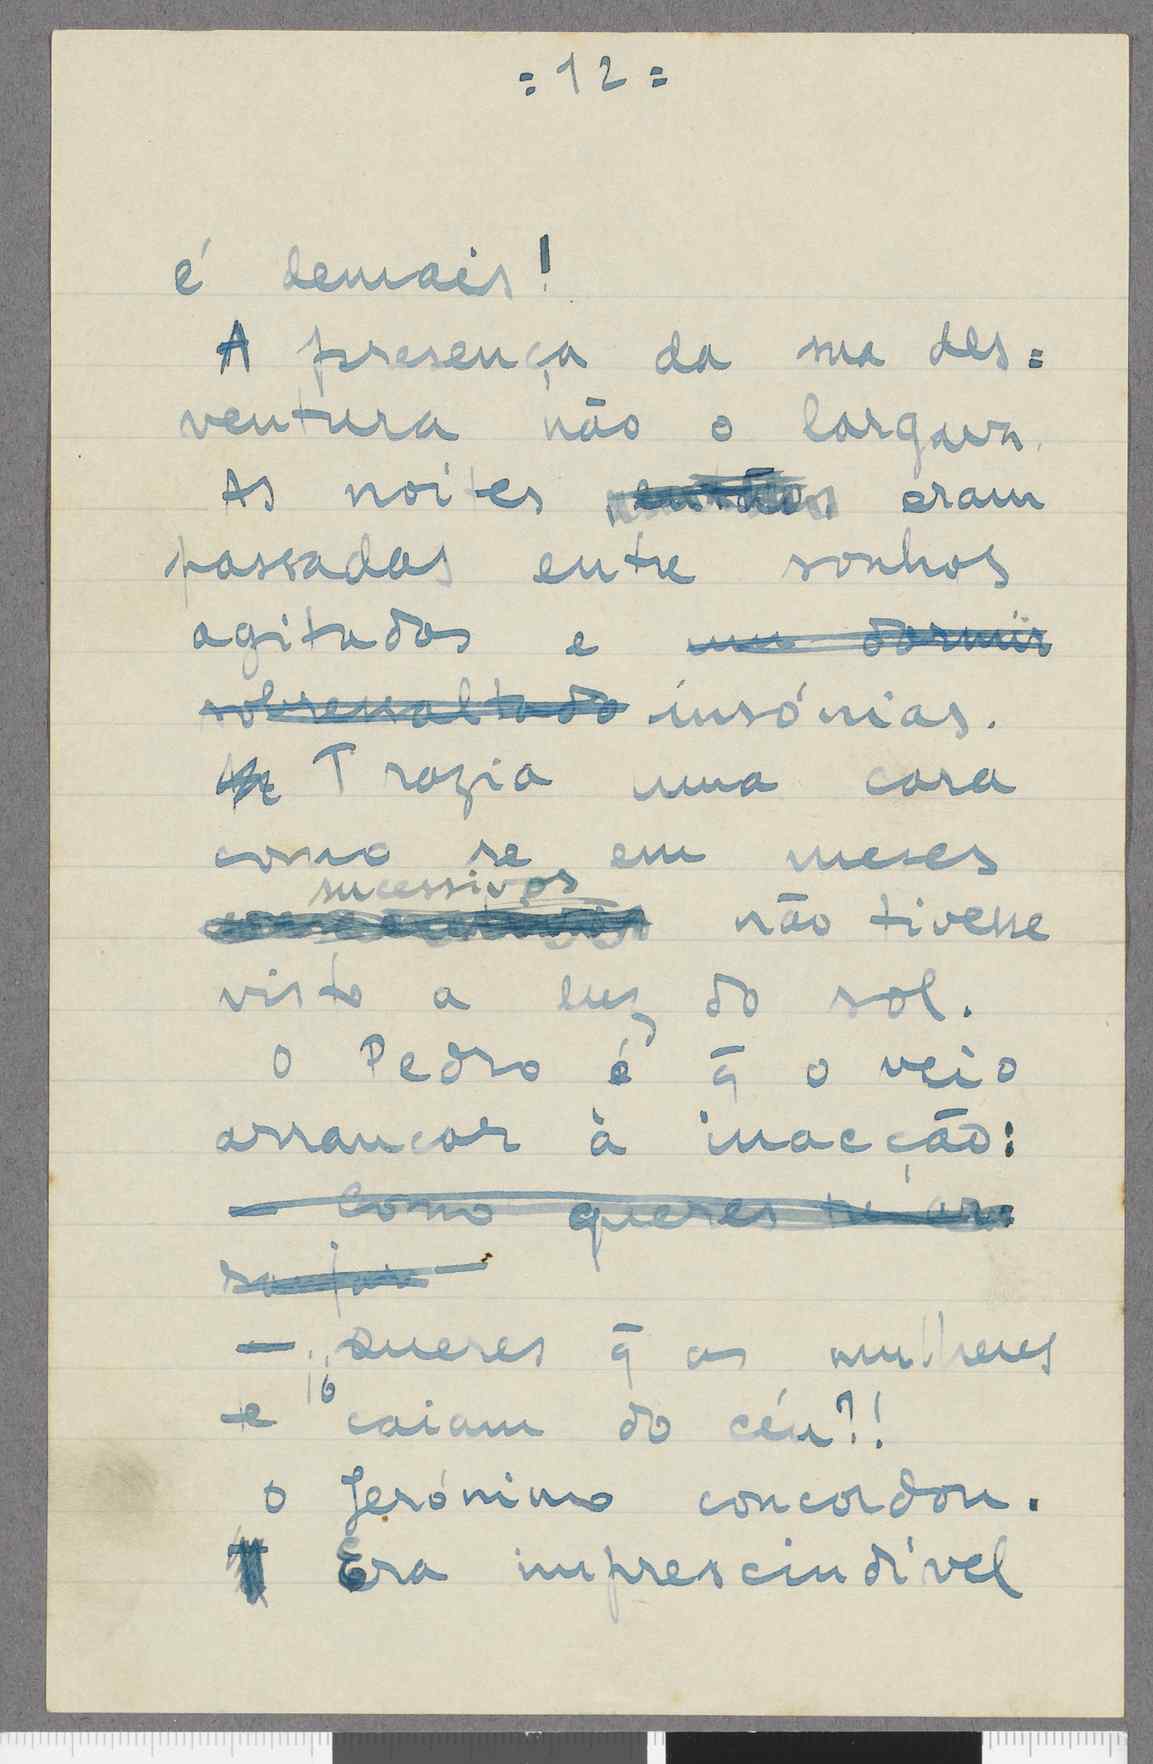 = 12 =
é demais!
A presença da sua des=
ventura não o largava.
As noites eram
passadas entre sonhos
agitados e um dormir
sobressaltado insónias.
Trazia uma cara
como se em meses
sucessivos
não tivesse
visto a luz do sol.
O Pedro é q̃ o veio
arrancar à inacção:
— Como queres tu arran
sanjar —
— Queres q̃ as mulheres
e caiam do céu?!
O Jerónimo concordou.
Era imprescindível